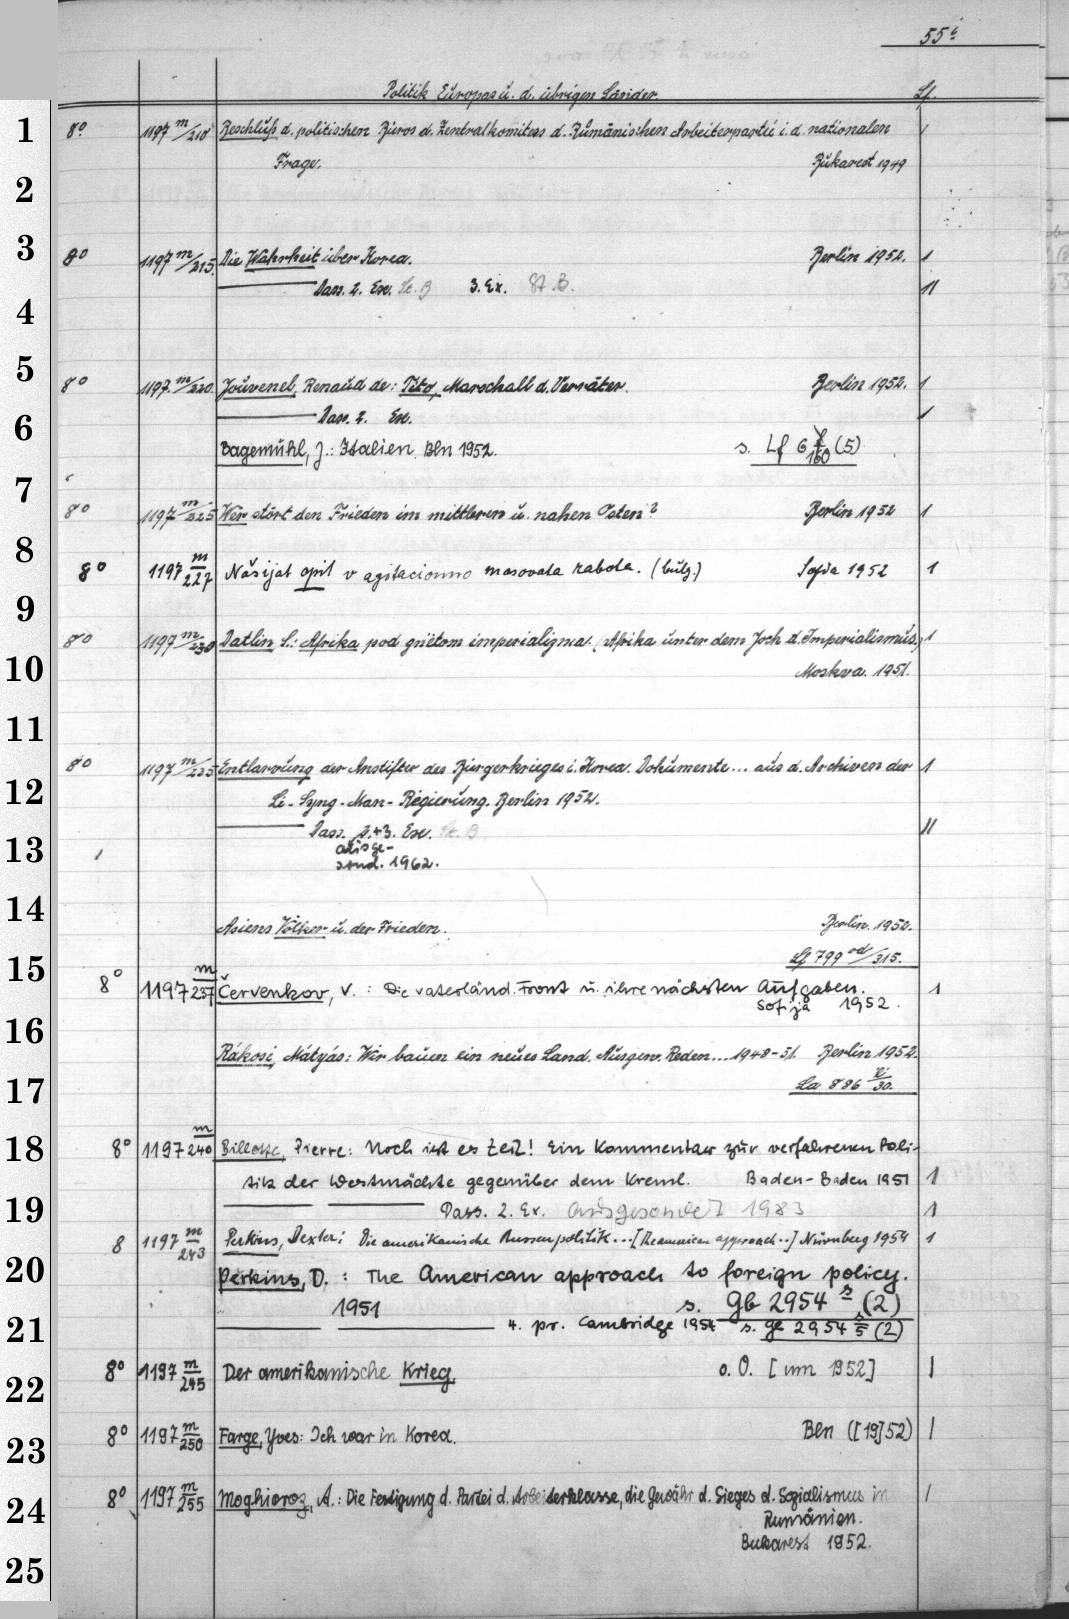 55ᶦ
Politik Europas u. d. übrigen Länder. Lf.
1 8° 1197 m/210 Beschluß d. politischen Büros d. Zentralkomitees d. Rumänischen Arbeiterpartei i. d. nationalen 1
Frage. Bukarest 1949
2
3 8° 1197 m/215. Die Wahrheit über Korea. Berlin 1952. 1
Dass. 2. Ex. St. B 3. Ex. St. B. 11
4
5 8° 1197 m/220. Jouvenel, Renaud de: Tito, Marschall d. Verräter. Berlin 1952. 1
6 Dass. 2. Ex. 1
Bagemühl, J.: Italien. Bln 1952. s. Lf G (5)
160
7 8° 1197 m/225 Wer stört den Frieden im mittleren u. nahen Osten? Berlin 1952 1
8 8° 1197 m/227 Našijat opit v agitacionno masovata rabota. (bulg.) Sofia 1952 1
9
10 8° 1197 m/230 Datlin S.: Afrika pod gnëtom imperializma. (Afrika unter dem Joch d. Imperialismus.) 1
Moskva. 1951.
11
12 8° 1197 m/235 Entlarvung der Anstifter des Bürgerkrieges i. Korea. Dokumente... aus d. Archiven der 1
Li-Syng-Man-Regierung. Berlin 1952.
13 Dass. 2.+3. Ex. St. B 11
ausge-
sond. 1962.
14
Asiens Völker u. der Frieden. Berlin. 1952.
15 Lf 799 od/315.
8° 1197 m/237 Červenkov, V.: Die vaterländ. Front u. ihre nächsten Aufgaben. 1
Sofija 1952.
16
Rákosi, Mátyás: Wir bauen ein neues Land. Ausgew. Reden...1948-51. Berlin 1952.
17 La 886 /30.
18 8° 1197 m/240 Billotte, Pierre: Noch ist es Zeit! Ein Kommentar zur verfahrenen Poli-
tik der Westmächte gegenüber dem Kreml. Baden-Baden 1951 1
19 Dass. 2. Ex. ausgesondert 1983 1
8 1197 m/243 Perkins, Dexter: Die amerikanische Aussenpolitik...[The american approach..] Nürnberg 1954 1
20 Perkins, D.: The American approach to foreign policy.
1951 s. gb 2954 s (2)
21 4. pr. Cambridge 1954 s. ge 2954 s/5 (2)
22 8° 1197 m/245 Der amerikanische Krieg. o. O. [um 1952] 1
23 8° 1197 m/250 Farge, Yves: Ich war in Korea. Bln ([19]52) 1
24 8° 1197 m/255 Moghioroz, A.: Die Festigung d. Partei d. Arbeiterklasse, die Gewähr d. Sieges d. Sozialismus in 1
Rumänien.
25 Bukarest 1952.